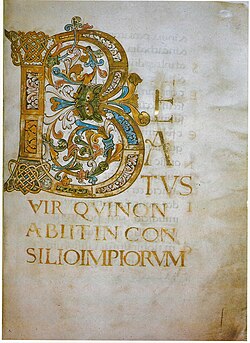 B E
A
TVS
VIR QVINON
ABIIT IN CON
SILIOIMPIORVM